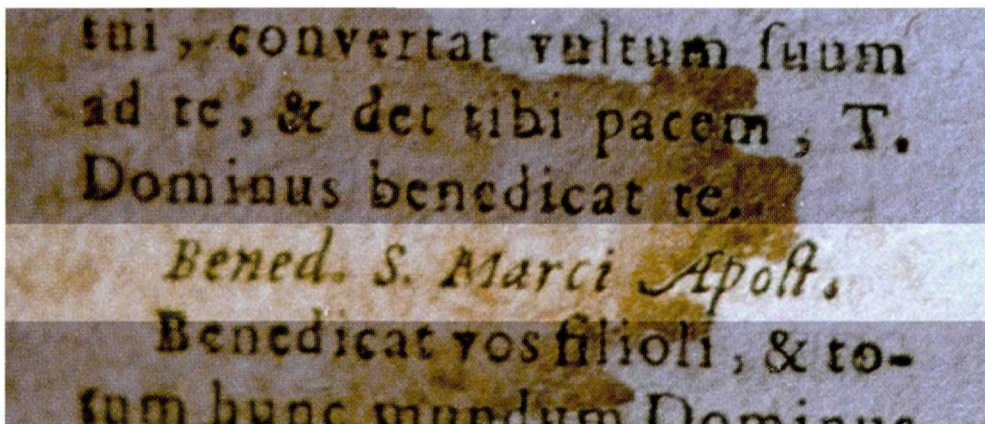 tui, convertat vultum ſuum
ad te, & det tibi pacem, T.
Dominus benedicat te.
Bened. S. Marci Apoſt.
Benedicat vos filioli, & to-
tum hunc mundum Dominus